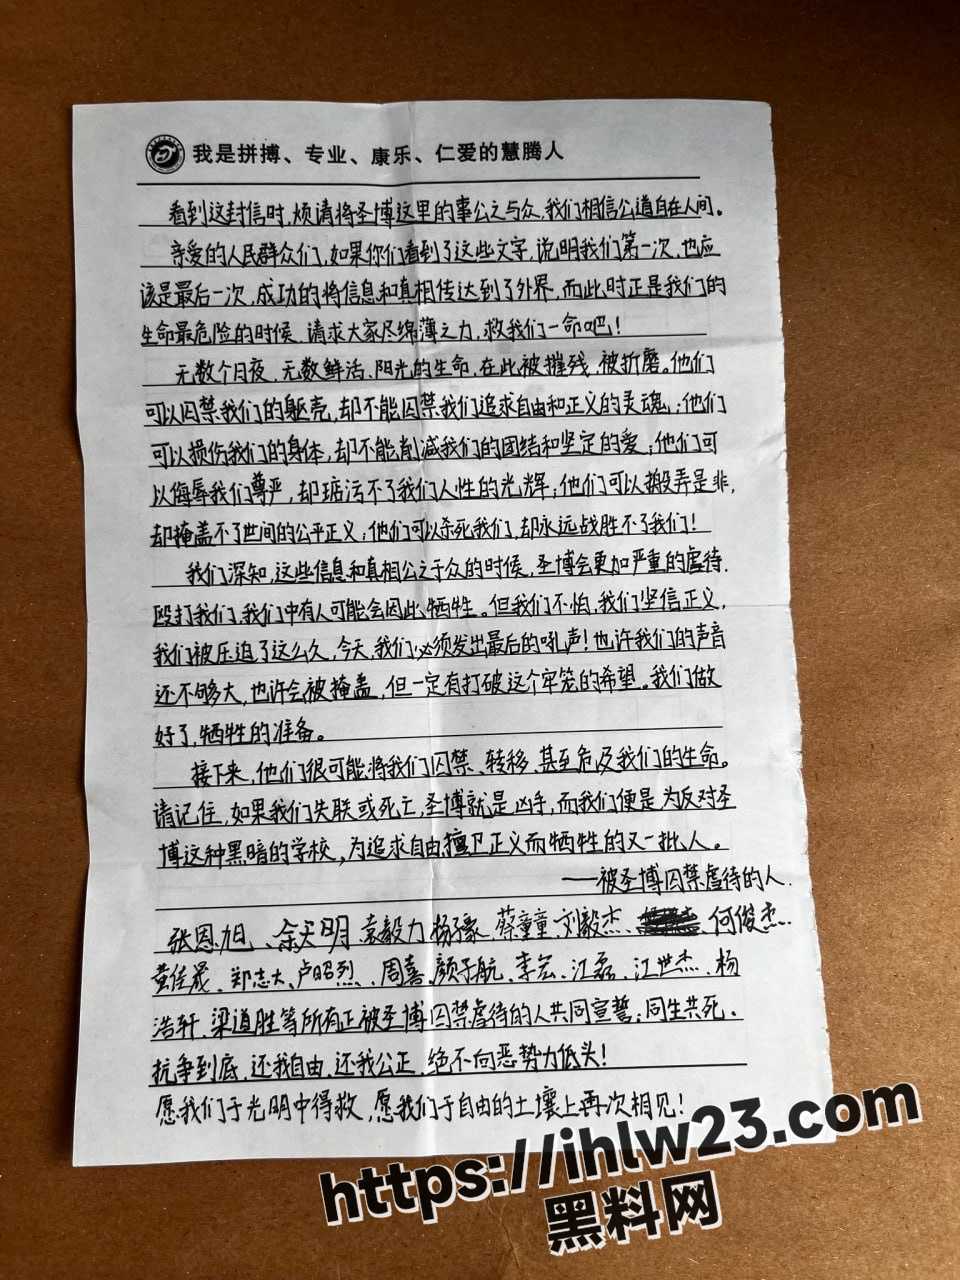 我是拼搏、专业、康乐、仁爱的慧腾人
看到这封信时,烦请将圣博这里的事公之与众,我们相信公道自在人间。
亲爱的人民群众们,如果你们看到了这些文字,说明我们第一次,也应
该是最后一次,成功的将信息和真相传达到了外界,而此时正是我们的
生命最危险的时候,请求大家尽绵薄之力,救我们一命吧!
无数个月夜,无数鲜活、阳光的生命,在此被摧残,被折磨。他们
可以囚禁我们的躯壳,却不能囚禁我们追求自由和正义的灵魂;他们
可以损伤我们的身体,却不能削减我们的团结和坚定的爱;他们可
以侮辱我们尊严,却玷污不了我们人性的光辉;他们可以搬弄是非,
却掩盖不了世间的公平正义;他们可以杀死我们,却永远战胜不了我们!
我们深知,这些信息和真相公之于众的时候,圣博会更加严重的虐待、
殴打我们,我们中有人可能会因此牺牲。但我们不怕,我们坚信正义,
我们被压迫了这么久,今天,我们必须发出最后的吼声!也许我们的声音
还不够大,也许会被掩盖,但一定有打破这个牢笼的希望。我们做
好了,牺牲的准备。
接下来,他们很可能将我们囚禁、转移,甚至危及我们的生命。
请记住,如果我们失联或死亡,圣博就是凶手,而我们便是为反对圣
博这种黑暗的学校,为追求自由擅卫正义而牺牲的又一批人。
——被圣博囚禁虐待的人.
张恩旭、余天明、袁毅力、杨子豪、蔡童童、刘毅杰、何俊杰、
黄佳晟、郑志大、卢昭烈、周喜、颜于航、李宏、江磊、江世杰、杨
浩轩、梁道胜等所有正被圣博囚禁虐待的人共同宣誓:同生共死、
抗争到底,还我自由,还我公正,绝不向恶势力低头!
愿我们于光明中得救,愿我们于自由的土壤上再次相见!
https://ihlw23.com
黑料网